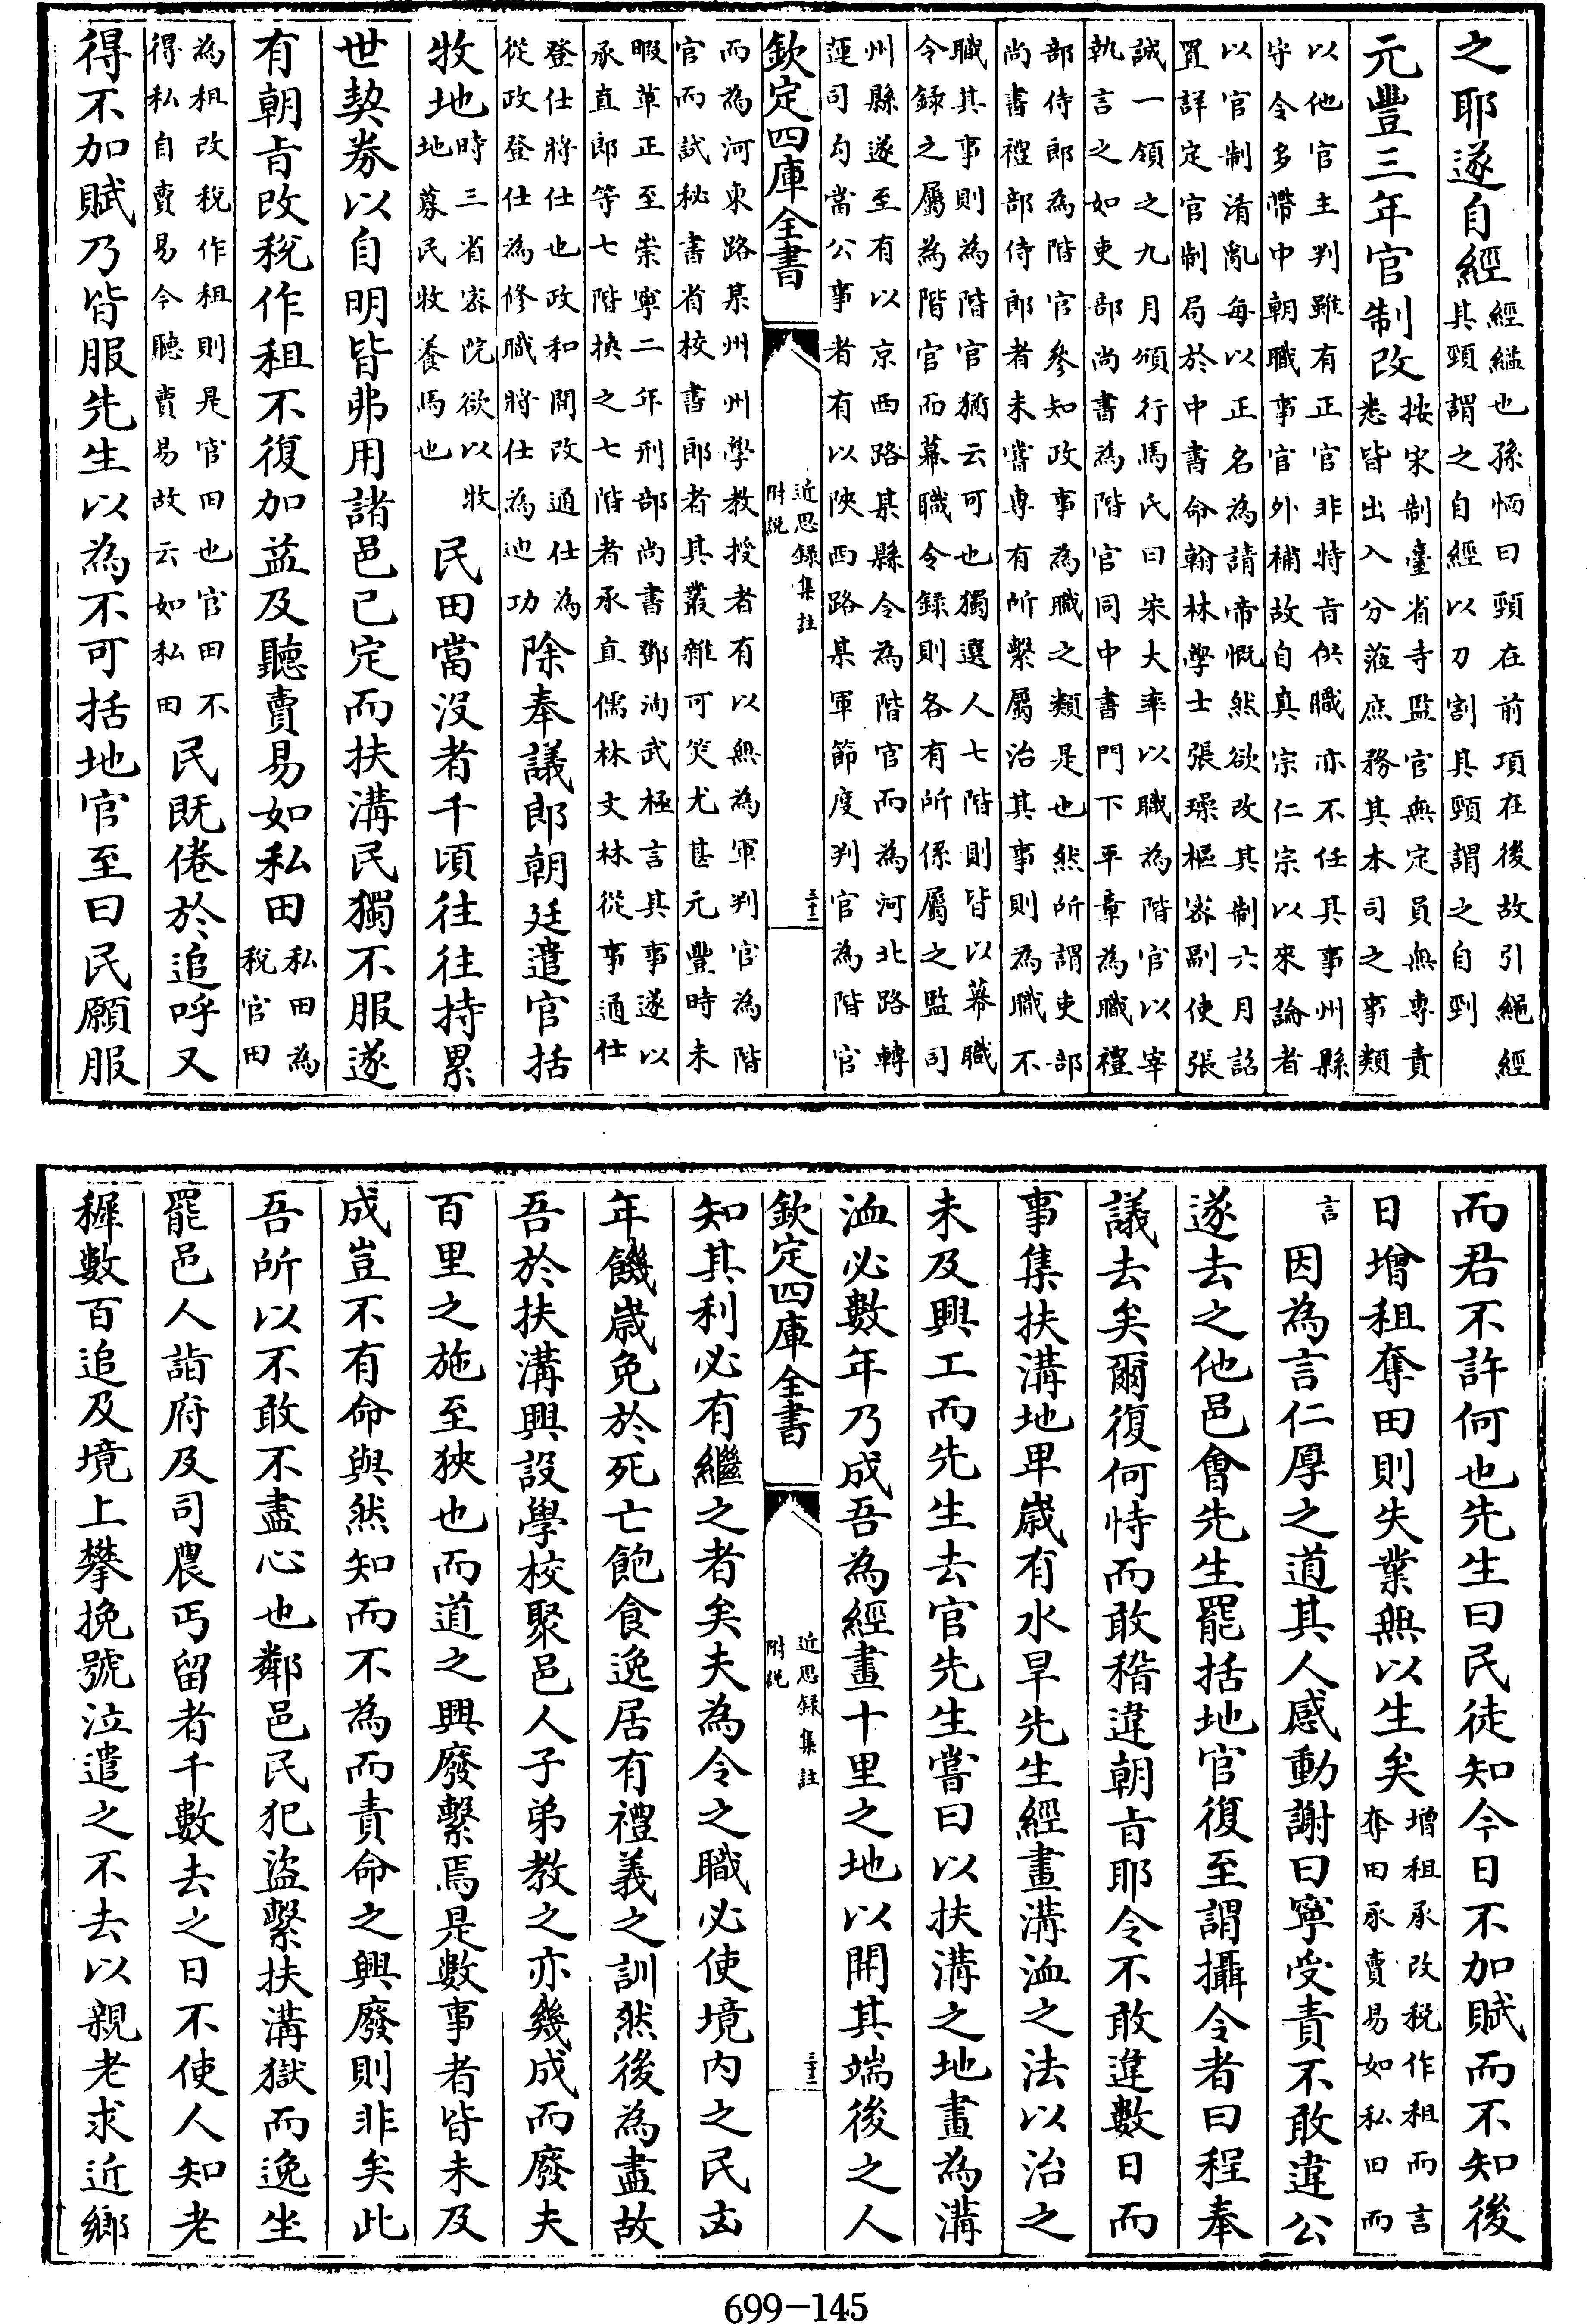 之耶遂自經經縊也孫愐曰頸在前項在後故引繩經
其頸謂之自經以刀割其頸謂之自剄
元豐三年官制改按宋制臺省寺監官無定員無専責
悉皆出入分蒞庶務其本司之事類
以他官主判雖有正官非特㫖供職亦不任其事州縣
守令多帶中朝職事官外補故自真宗仁宗以來論者
以官制淆亂每以正名為請帝慨然欲改其制六月詔
置詳定官制局於中書命翰林學士張璪樞宻副使張
誠一領之九月頒行馬氏曰宋大率以職為階官以宰
執言之如吏部尚書為階官同中書門下平章為職禮
部侍郎為階官參知政事為職之類是也然所謂吏部
尚書禮部侍郎者未嘗専有所繫屬治其事則為職不
職其事則為階官猶云可也獨選人七階則皆以幕職
令録之屬為階官而幕職令録則各有所係屬之監司
州縣遂至有以京西路某縣令為階官而為河北路轉
運司勾當公事者有以陜西路某軍節度判官為階官
欽定四庫全書
近思録集註
附説
而為河東路某州州學教授者有以無為軍判官為階
官而試秘書省校書郎者其叢雜可笑尤甚元豐時未
暇革正至崇寧二年刑部尚書鄧洵武極言其事遂以
承直郎等七階換之七階者承直儒林文林從事通仕
登仕將仕也政和間改通仕為
從政登仕為修職將仕為迪功除奉議郎朝廷遣官括
牧地時三省宻院欲以牧
地募民牧養馬也民田當沒者千頃往往持累
世契券以自明皆弗用諸邑已定而扶溝民獨不服遂
有朝㫖改稅作租不復加益及聽賣易如私田私田為
稅官田
為租改稅作租則是官田也官田不
得私自賣易今聽賣易故云如私田民既倦於追呼又
得不加賦乃皆服先生以為不可括地官至曰民願服
而君不許何也先生曰民徒知今日不加賦而不知後
日增租奪田則失業無以生矣增租承改稅作租而言
奪田承賣易如私田而
言因為言仁厚之道其人感動謝曰寧受責不敢違公
遂去之他邑會先生罷括地官復至謂攝令者曰程奉
議去矣爾復何恃而敢稽違朝㫖耶令不敢違數日而
事集扶溝地卑歳有水旱先生經畫溝洫之法以治之
未及興工而先生去官先生嘗曰以扶溝之地畫為溝
洫必數年乃成吾為經畫十里之地以開其端後之人
欽定四庫全書
近思録集註
附説
知其利必有繼之者矣夫為令之職必使境内之民凶
年饑歳免於死亡飽食逸居有禮義之訓然後為盡故
吾於扶溝興設學校聚邑人子弟教之亦幾成而廢夫
百里之施至狹也而道之興廢繫焉是數事者皆未及
成豈不有命與然知而不為而責命之興廢則非矣此
吾所以不敢不盡心也鄰邑民犯盜繫扶溝獄而逸坐
罷邑人詣府及司農丐留者千數去之日不使人知老
穉數百追及境上攀挽號泣遣之不去以親老求近鄉
699-145